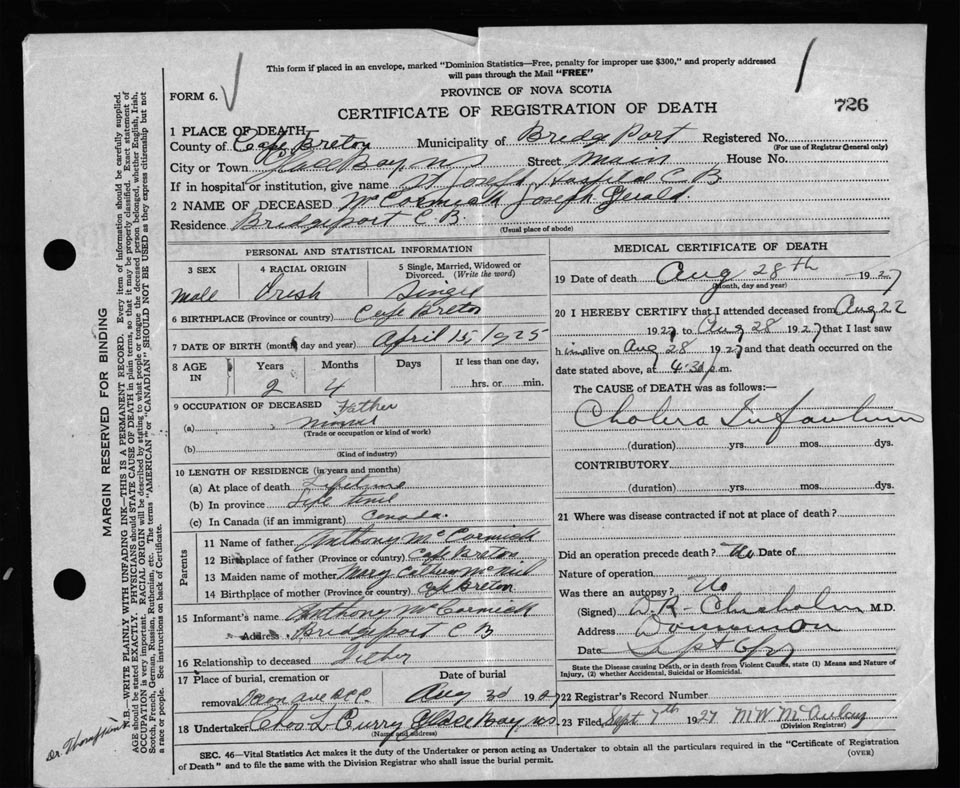 This form if placed in an envelope, marked "Dominion Statistics—Free, penalty for improper use $300," and properly addressed
will pass through the Mail "FREE"
FORM 6.
PROVINCE OF NOVA SCOTIA
CERTIFICATE OF REGISTRATION OF DEATH
726
1 PLACE OF DEATH
County of Cape Breton Municipality of Bridgeport Registered No.
(For use of Registrar General only)
City or Town Glace Bay N S Street Main House No.
If in hospital or institution, give name St Joseph Hospital C B
2 NAME OF DECEASED McCormick Joseph Gerald.
Residence Bridgeport C B.
(Usual place of abode)
PERSONAL AND STATISTICAL INFORMATION
3 SEX 4 RACIAL ORIGIN 5 Single, Married, Widowed or Divorced. (Write the word)
Male Irish Single
6 BIRTHPLACE (Province or country) Cape Breton
7 DATE OF BIRTH (month, day and year) April 15, 1925
8 AGE IN Years Months Days If less than one day,
2 4 hrs. or min.
9 OCCUPATION OF DECEASED Father
(a) Miner
(Trade or occupation or kind of work)
(b)
(Kind of industry)
10 LENGTH OF RESIDENCE (in years and months)
(a) At place of death Lifetime
(b) In province Life time
(c) In Canada (if an immigrant) Canada.
Parents
11 Name of father Anthony McCormick
12 Birthplace of father (Province or country) Cape Breton
13 Maiden name of mother Mary McNeil
14 Birthplace of mother (Province or Country) Breton
15 Informant's name Anthony McCormick
Address Bridgeport C B
16 Relationship to deceased Father
17 Place of burial, cremation or removal Date of burial
Aug 30 192
18 Undertaker Chas L Curry Glace Bay NS
(Name and address)
MEDICAL CERTIFICATE OF DEATH
19 Date of death Aug 28th 1927
(Month, day and year)
20 I HEREBY CERTIFY that I attended deceased from Aug 22
1927 to Aug 28 1927 that I last saw
him alive on Aug 28 1927 and that death occurred on the
date stated above, at 4.30 p.m.
The CAUSE of DEATH was as follows:
Cholera Infantum
(duration) yrs. mos. dys.
CONTRIBUTORY
(duration) yrs. mos. dys.
21 Where was disease contracted if not at place of death?
Did an operation precede death? No Date of
Nature of operation
Was there an autopsy? No
(Signed) D.R. Chisholm M.D.
Address Dominion
Date Sept
State the Disease causing Death, or in death from Violent Causes, state (1) Means and Nature of
Injury, (2) whether Accidental, Suicidal or Homicidal.
22 Registrar's Record Number
23 Filed Sept 7th 1927 M W McAulay
(Division Registrar)
SEC. 46—Vital Statistics Act makes it the duty of the Undertaker or person acting as Undertaker to obtain all the particulars required in the "Certificate of Registration
of Death" and to file the same with the Division Registrar who shall issue the burial permit.
(OVER)
MARGIN RESERVED FOR BINDING
N.B.—WRITE PLAINLY WITH UNFADING INK—THIS IS A PERMANENT RECORD. Every item of information should be carefully supplied.
AGE should be stated EXACTLY. PHYSICIANS should STATE CAUSE OF DEATH in plain terms, so that it may be properly classified. Exact statement of
OCCUPATION is very important. RACIAL ORIGIN will be described by stating to what people or tongue the deceased person belonged, whether English, Irish,
Scotch, French, German, Russian, Ruthenian, etc. The terms "AMERICAN" or "CANADIAN" SHOULD NOT BE USED as they express citizenship but not
a race or people. See instructions on back of Certificate.
Dr Thompson